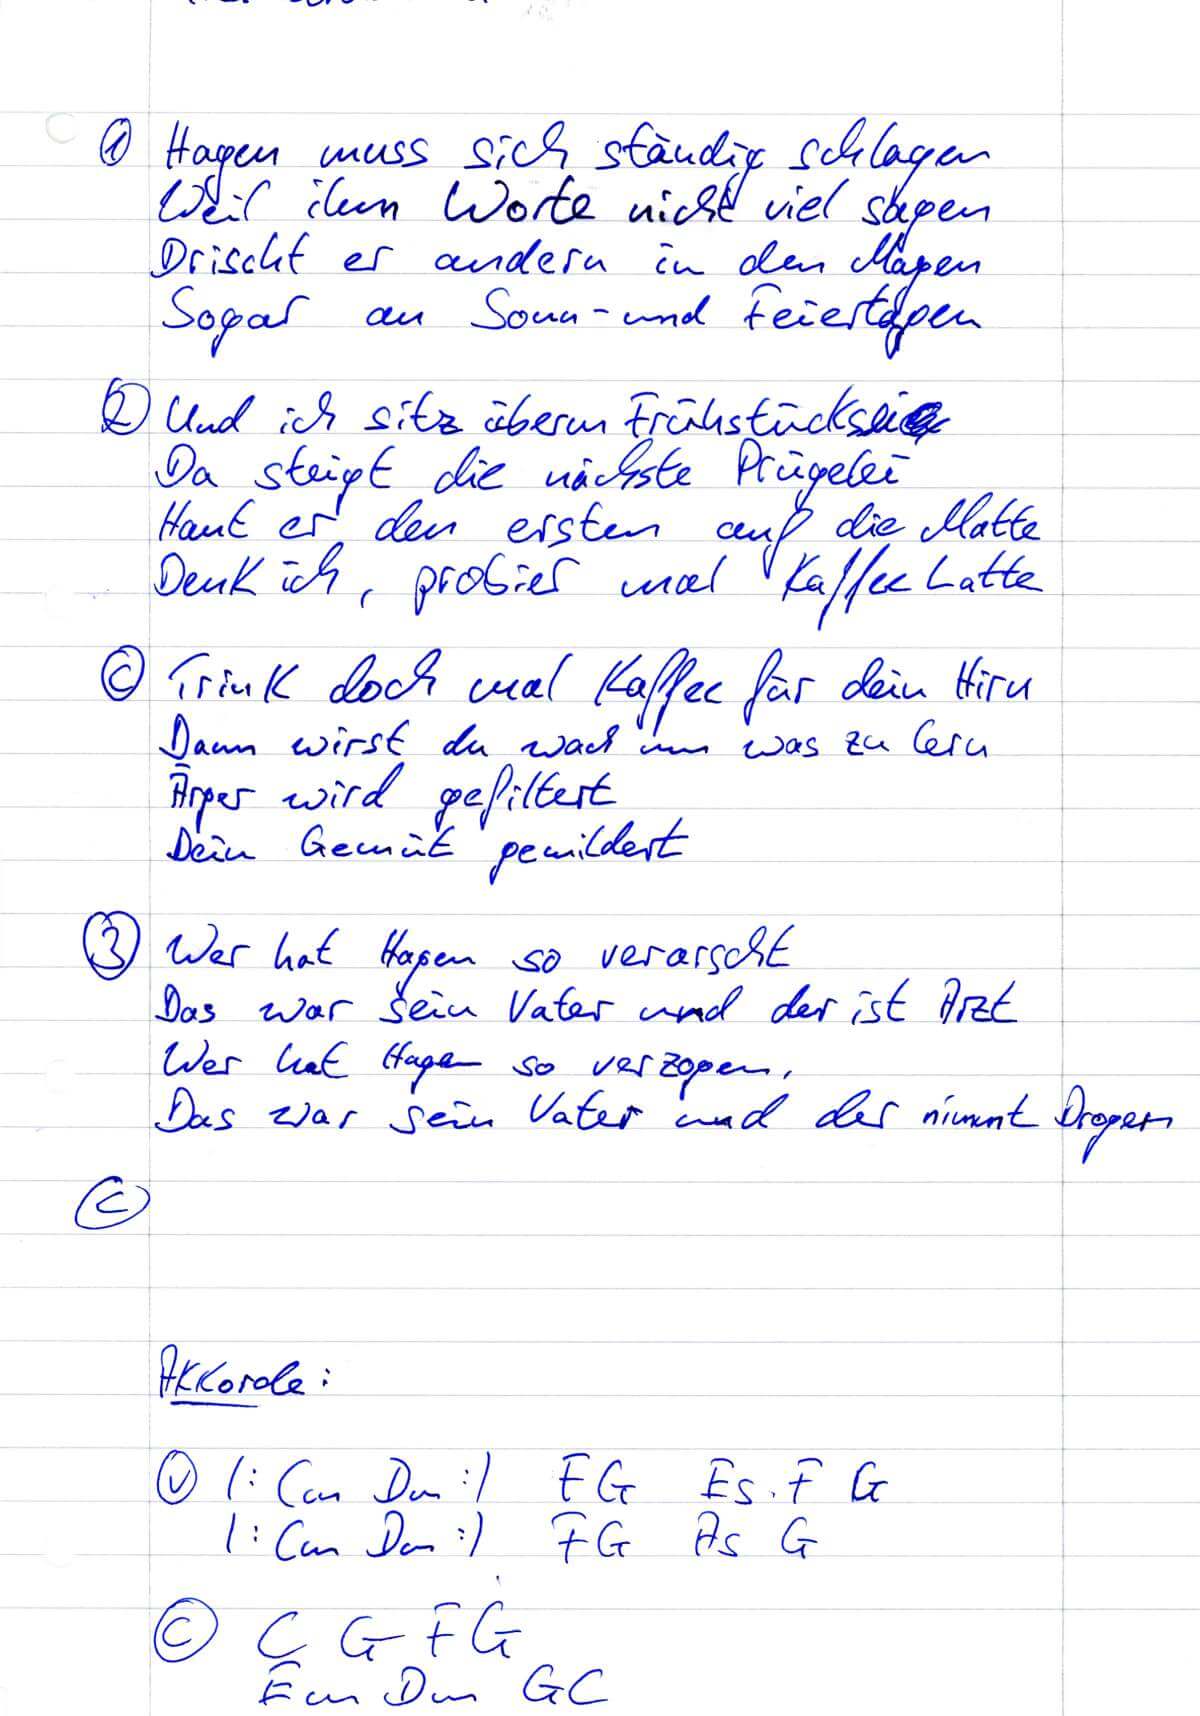 ① Hagen muss sich ständig schlagen
Weil ihm Worte nicht viel sagen
Drischt er andern in den Magen
Sogar an Sonn-und Feiertagen
② Und ich sitz überm Frühstücksei
Da steigt die nächste Prügelei
Haut er den ersten auf die Matte
Denk ich, probier mal Kaffee Latte
Ⓒ Trink doch mal Kaffee für dein Hirn
Dann wirst du wach um was zu lern
Ärger wird gefiltert
Dein Gemüt gemildert
③ Wer hat Hagen so verarscht
Das war sein Vater und der ist Arzt
Wer hat Hagen so verzogen,
Das war sein Vater und der nimmt Drogen
Ⓒ
Akkorde:
Ⓥ |: Cm Dm :| F G Es. F G
|: Cm Dm :| F G As G
Ⓒ C G F G
Em Dm G C